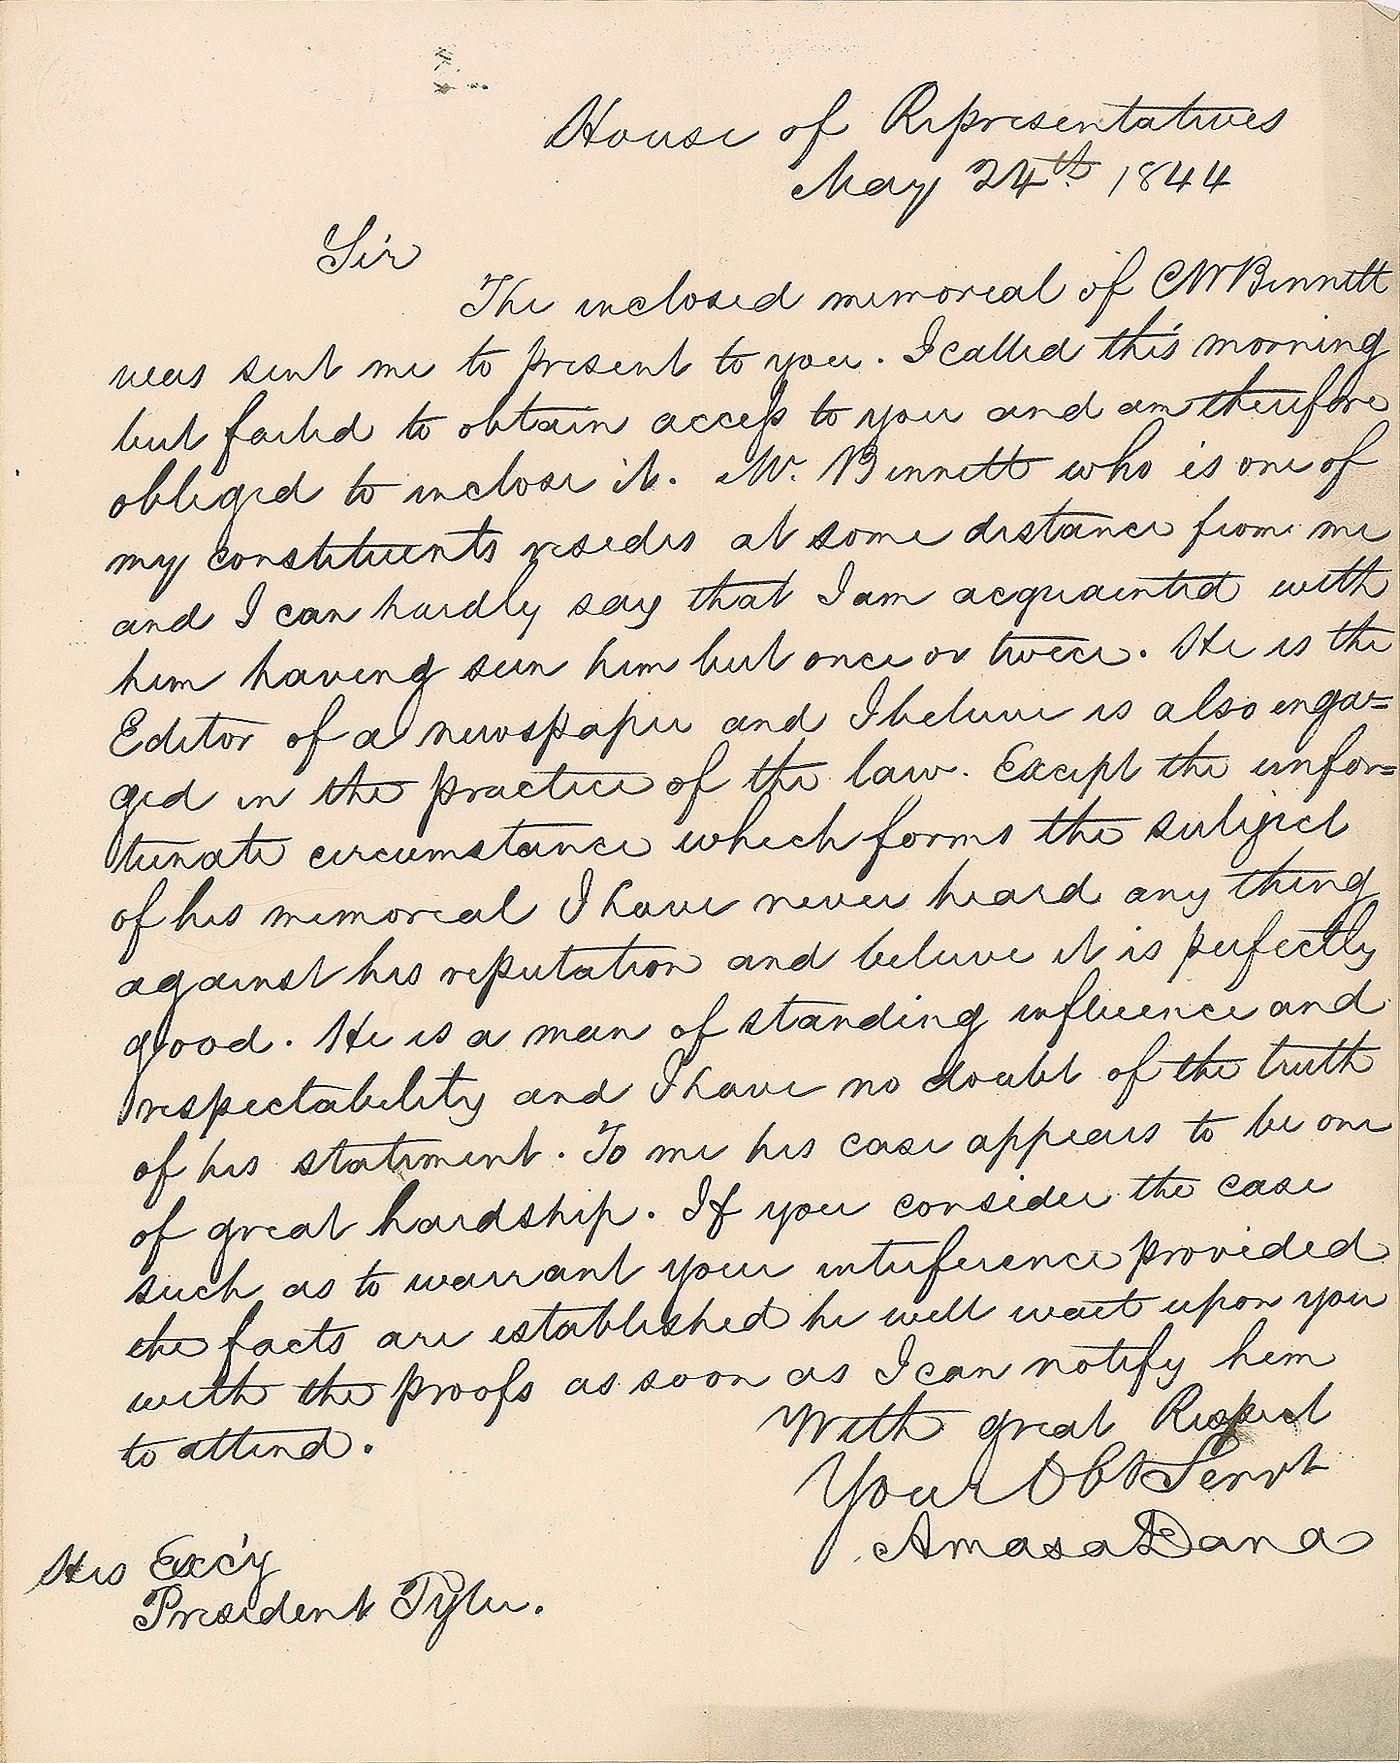 House of Representatives
May 24th 1844
Sir
The inclosed memorial of CW Bennett
was sent me to present to you. I called this morning
but failed to obtain access to you and am therefore
obliged to inclose it. Mr. Bennett who is one of
my constituents resides at some distance from me
and I can hardly say that I am acquainted with
him having seen him but once or twice. He is the
Editor of a newspaper and I believe is also enga=
ged in the practice of the law. Except the unfor=
tunate circumstance which forms the subject
of his memorial I have never heard any thing
against his reputation and believe it is perfectly
good. He is a man of standing influence and
respectability and I have no doubt of the truth
of his statement. To me his case appears to be one
of great hardship. If you consider the case
such as to warrant your interference provided
the facts are established he will wait upon you
with the proofs as soon as I can notify him
to attend.
With great Respect
Your Obt Servt
Amasa Dana
His Exc'y
President Tyler.